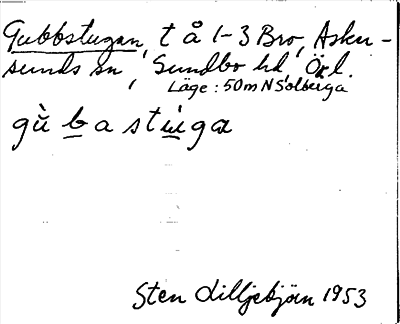 Gubbstugan, t å 1-3 Bro, Asker-
sunds sn, Sundbo hd, Ör l.
Läge: 50 m N Solberga
gù̀ b a stu̇ga
Sten Lilljebjörn 1953